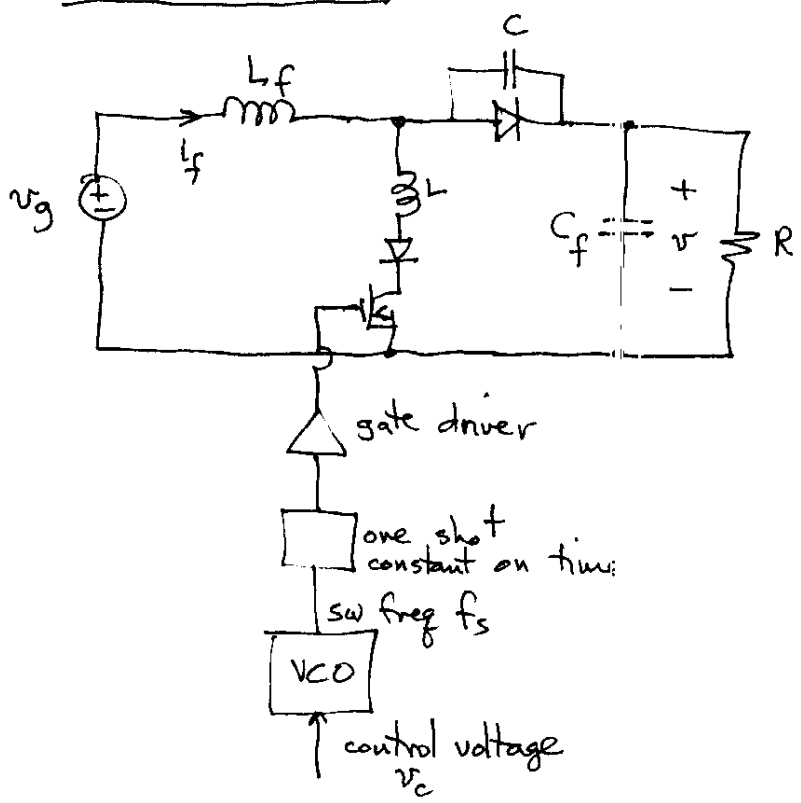 C
L_f
i_f
v_g
+
−
L
C_f
+
v
−
R
gate driver
one shot
constant on time
sw freq f_s
VCO
control voltage
v_c